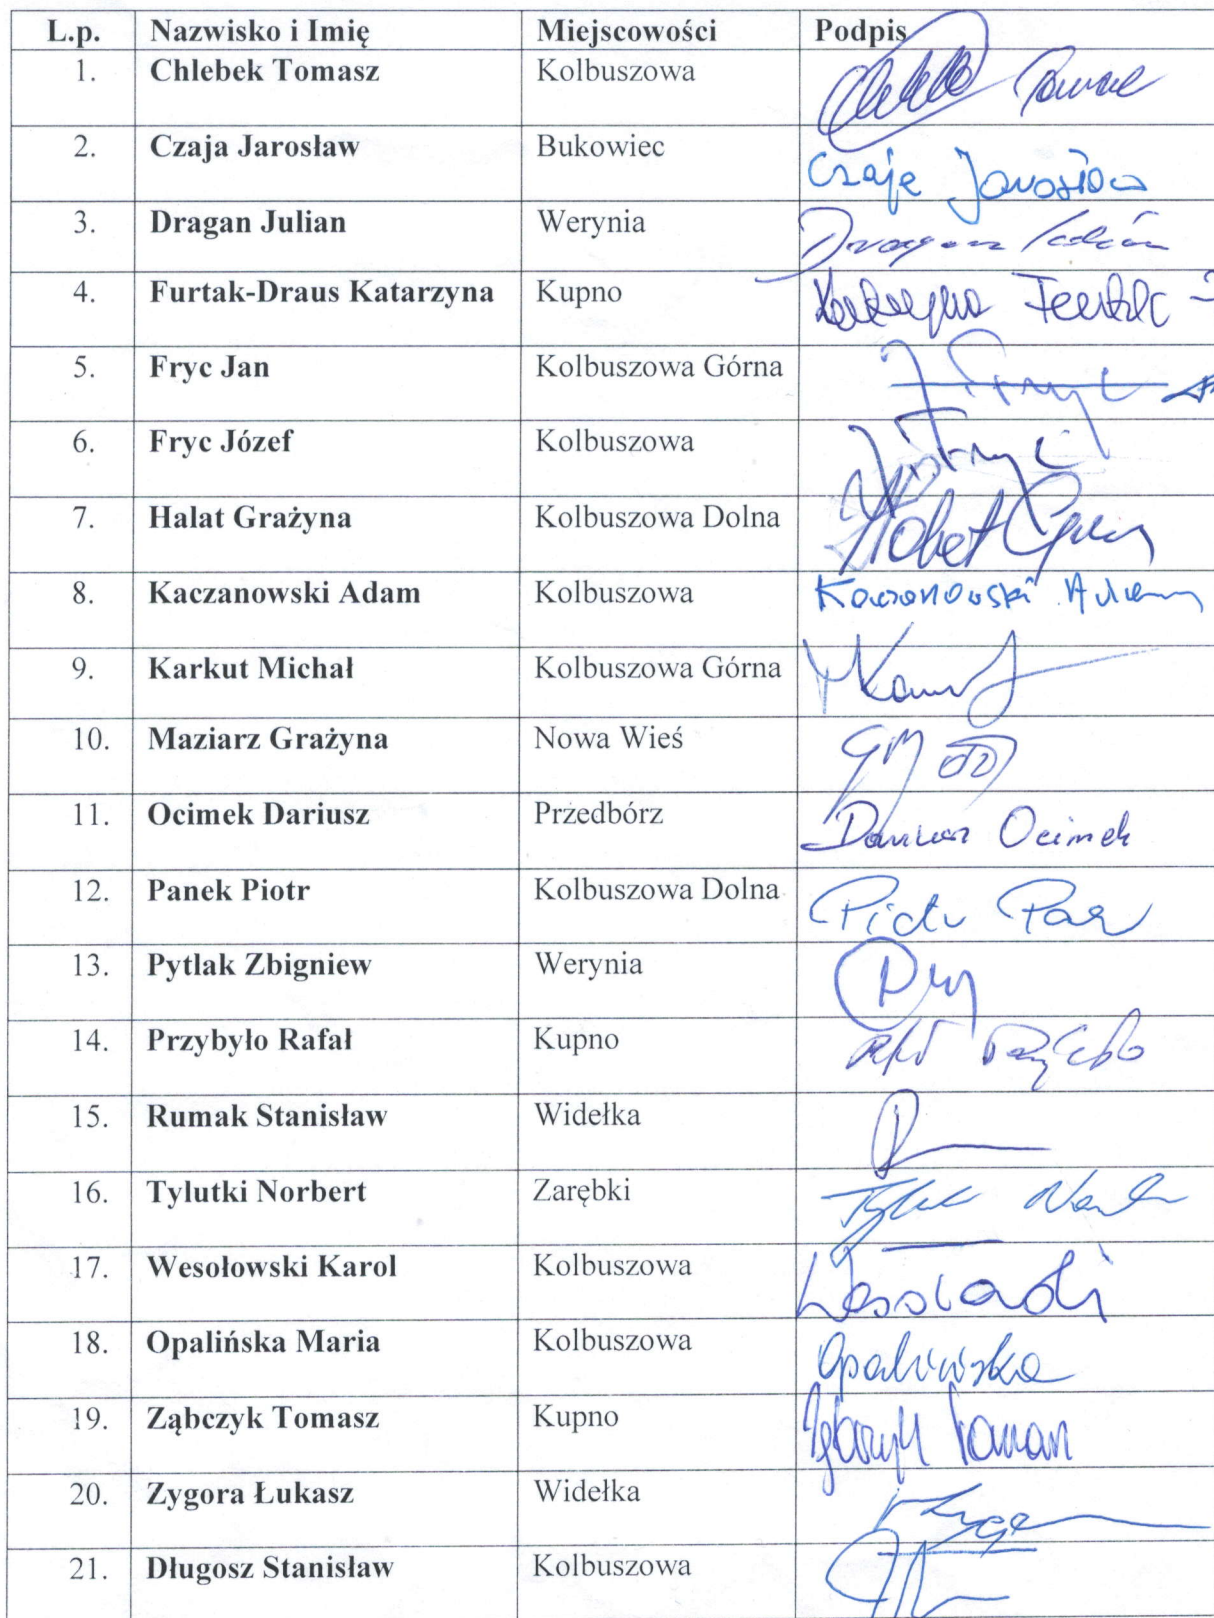 L.p. Nazwisko i Imię Miejscowości Podpis
1. Chlebek Tomasz Kolbuszowa
2. Czaja Jarosław Bukowiec Czaja Jarosław
3. Dragan Julian Werynia Dragan Julian
4. Furtak-Draus Katarzyna Kupno Katarzyna Furtak -
5. Fryc Jan Kolbuszowa Górna J. Fryc
6. Fryc Józef Kolbuszowa J. Fryc
7. Halat Grażyna Kolbuszowa Dolna Halat
8. Kaczanowski Adam Kolbuszowa Kaczanowski Adam
9. Karkut Michał Kolbuszowa Górna
10. Maziarz Grażyna Nowa Wieś
11. Ocimek Dariusz Przedbórz Dariusz Ocimek
12. Panek Piotr Kolbuszowa Dolna Piotr
13. Pytlak Zbigniew Werynia
14. Przybyło Rafał Kupno
15. Rumak Stanisław Widełka
16. Tylutki Norbert Zarębki
17. Wesołowski Karol Kolbuszowa
18. Opalińska Maria Kolbuszowa Opalińska
19. Ząbczyk Tomasz Kupno Ząbczyk Tomasz
20. Zygora Łukasz Widełka
21. Długosz Stanisław Kolbuszowa